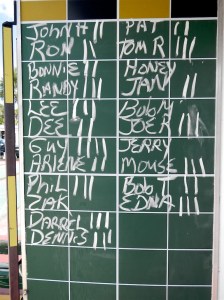 JOHN H || PAT
RON || TOM R |||
BONNIE || HONEY
RANDY ||| JAN ||
LEE ||
DEE || JOE R ||
GUY ||| JERRY
ARLENE ||| MOUSE |||
PHIL ||| BOB T ||
ZAK EDNA |||
DARREL |||
DENNIS |||